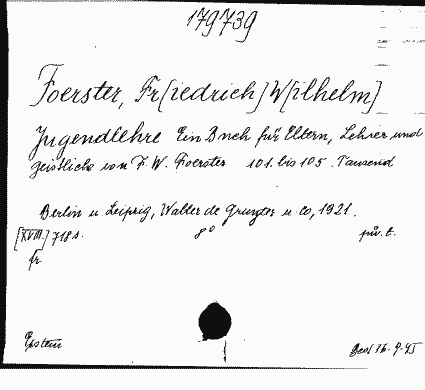 179739
Foerster, Fr[iedrich] W[ilhelm]
Jugendlehre Ein Buch für Eltern, Lehrer und
geistliche von F. W. Foerster 101. bis 105. Tausend
Berlin u. Leipzig, Walter de Gruyter u. Co, 1921.
[XVIII] 718 s. 8° pův. t.
fr
Epstein 16.9.45